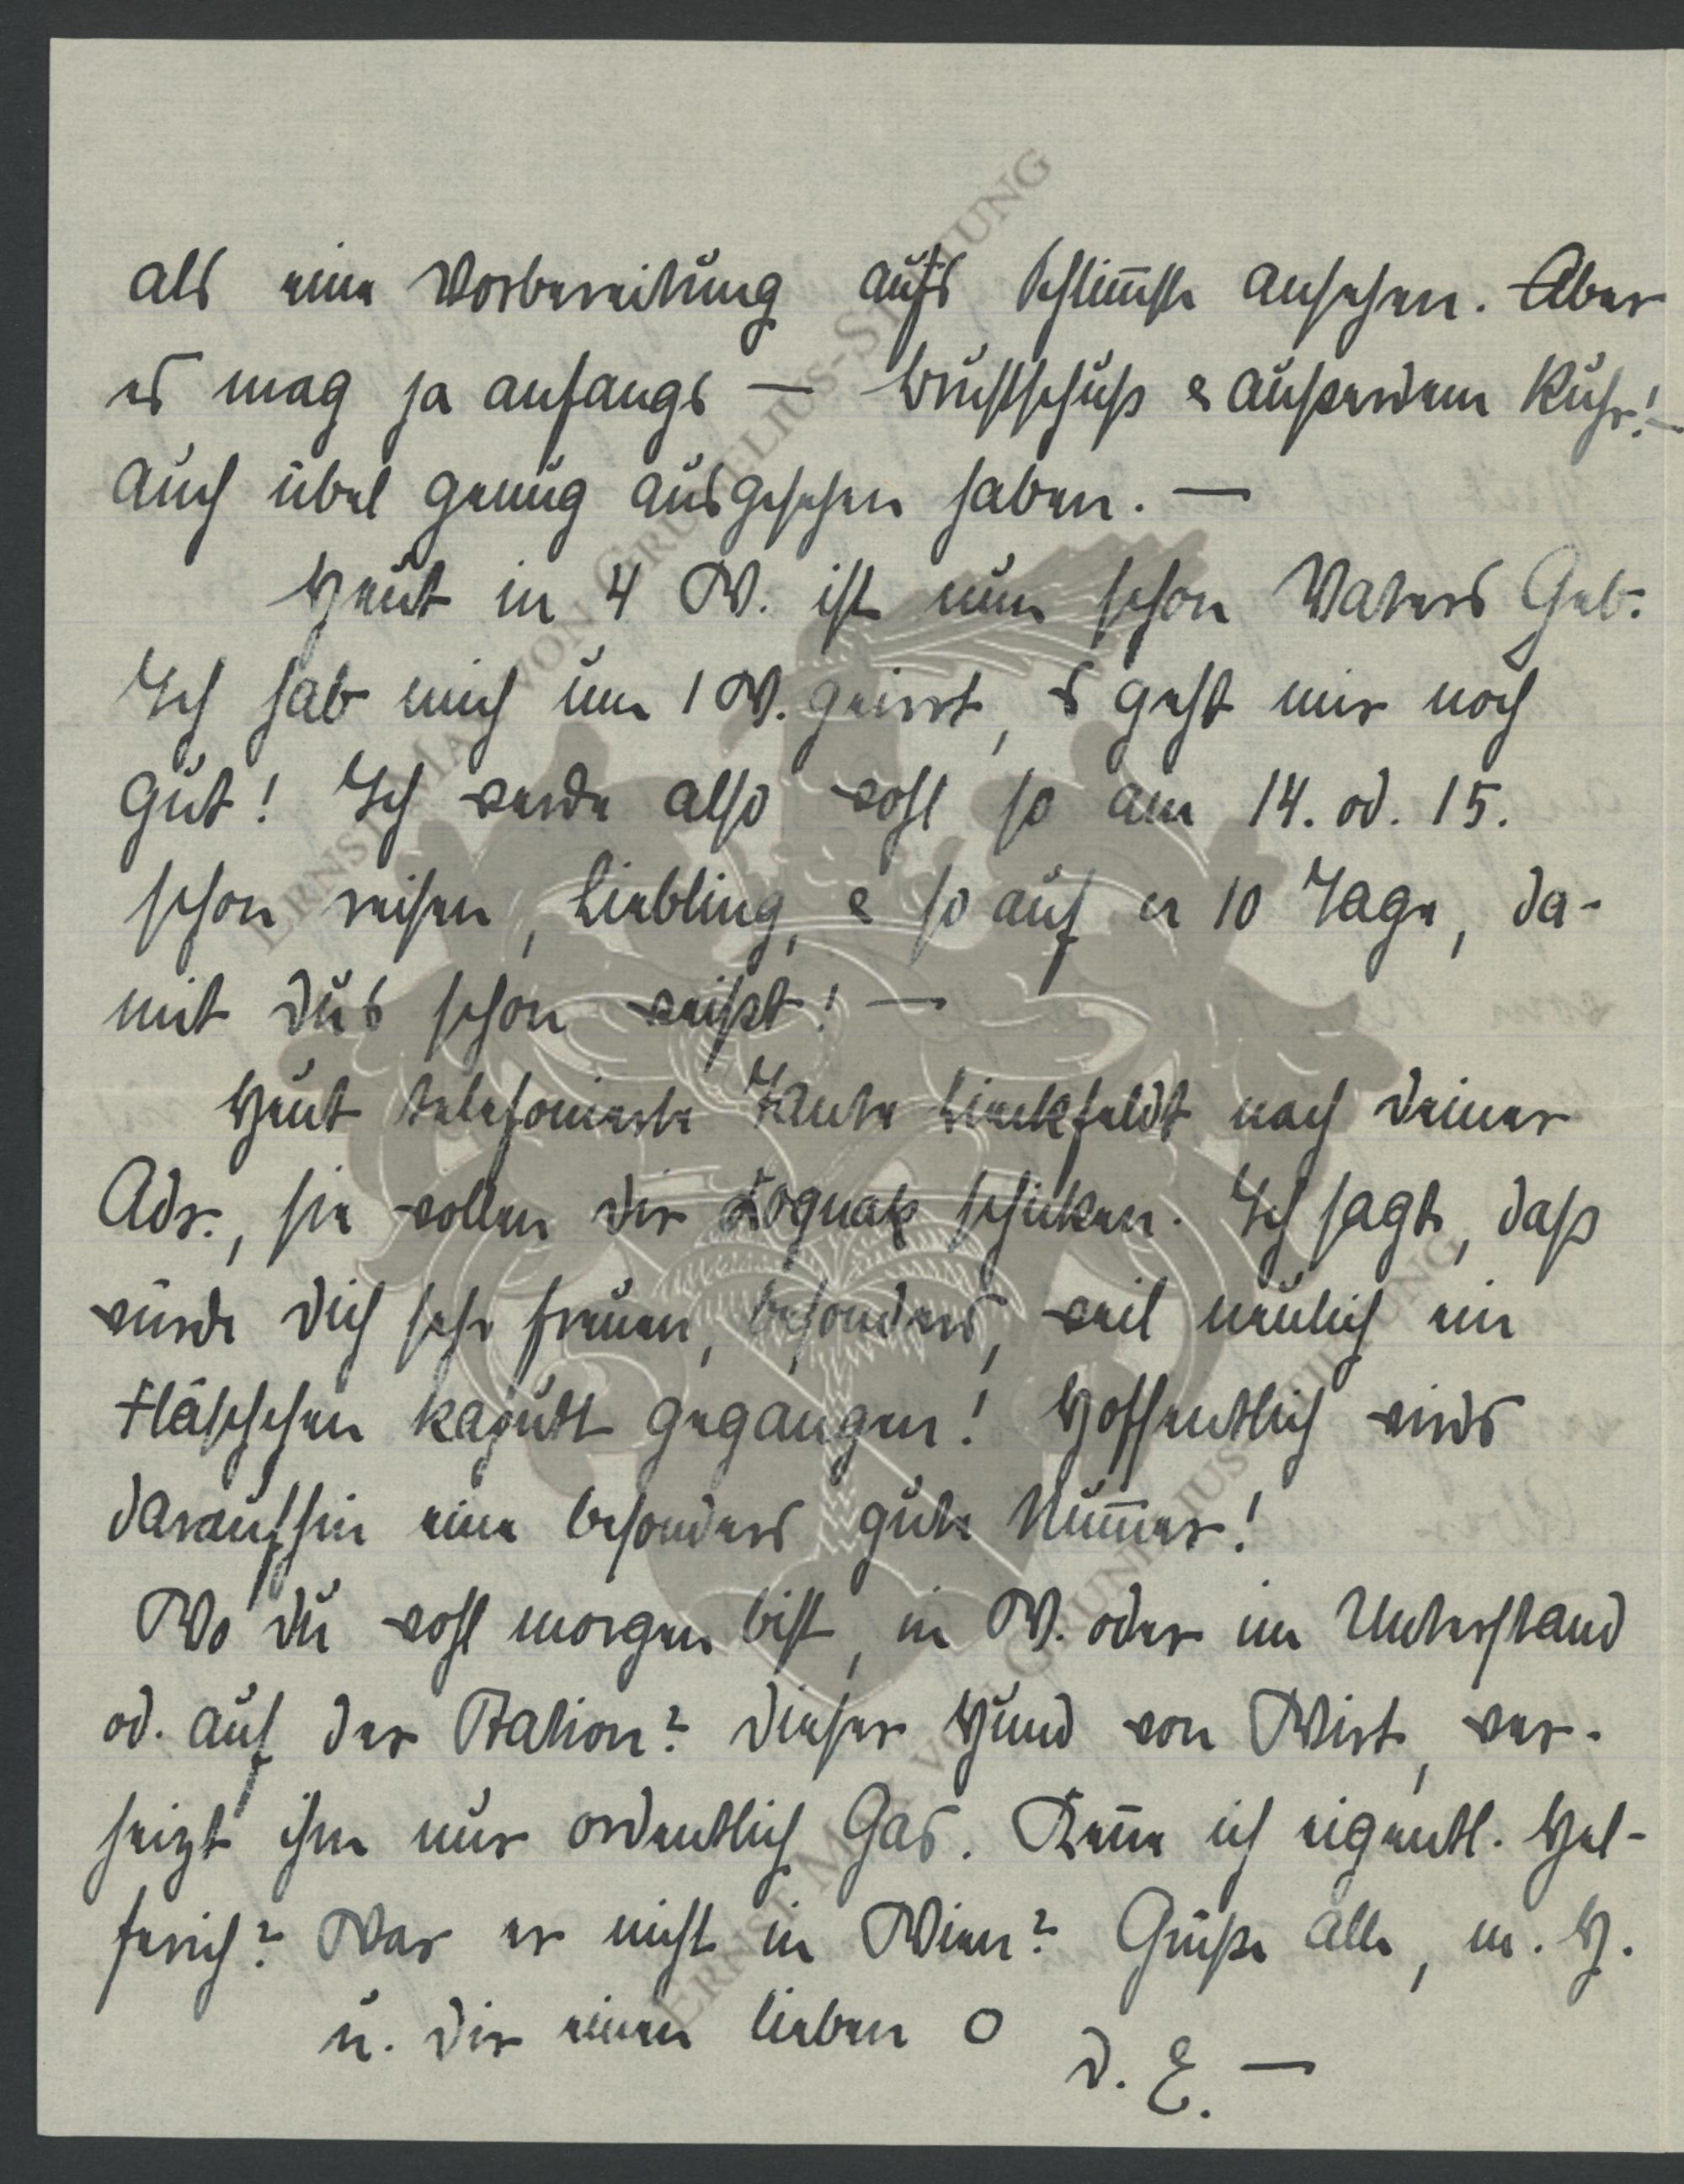 als eine Vorbereitung aufs schlim̄ste ansehen. Aber
es mag ja anfangs — Brustschuß & außerdem Ruhr! —
auch übel genug ausgesehen haben. —
Heut in 4 W. ist nun schon Vaters Geb.
Ich hab mich um 1 W. geirrt, es geht mir noch
gut! Ich werde also wohl so am 14. od. 15.
schon reisen, Liebling, & so auf 10 Tage, da-
mit Du's schon weißt! —
Heut telefonierte Tante Linckfeldt nach Deiner
Adr., sie wollen Dir Kognak schicken. Ich sagte, daß
würde Dich sehr freuen, besonders, weil neulich ein
Fläschchen kaputt gegangen! Hoffentlich wirds
daraufhin eine besonders gute Num̄er!
Wo Du wohl morgen bist, in W. oder im Unterstand
od. auf der Station? Dieser Hund von Wirt, ver-
heizt ihm nur ordentlich Gas. Ken̄e ich eigentl. Hel-
ferich? War er nicht in Wien? Grüße alle, m. H.
u. Dir einen lieben O
D. E. —
ERNST MAX VON GRUNELIUS-STIFTUNG
ERNST MAX VON GRUNELIUS-STIFTUNG